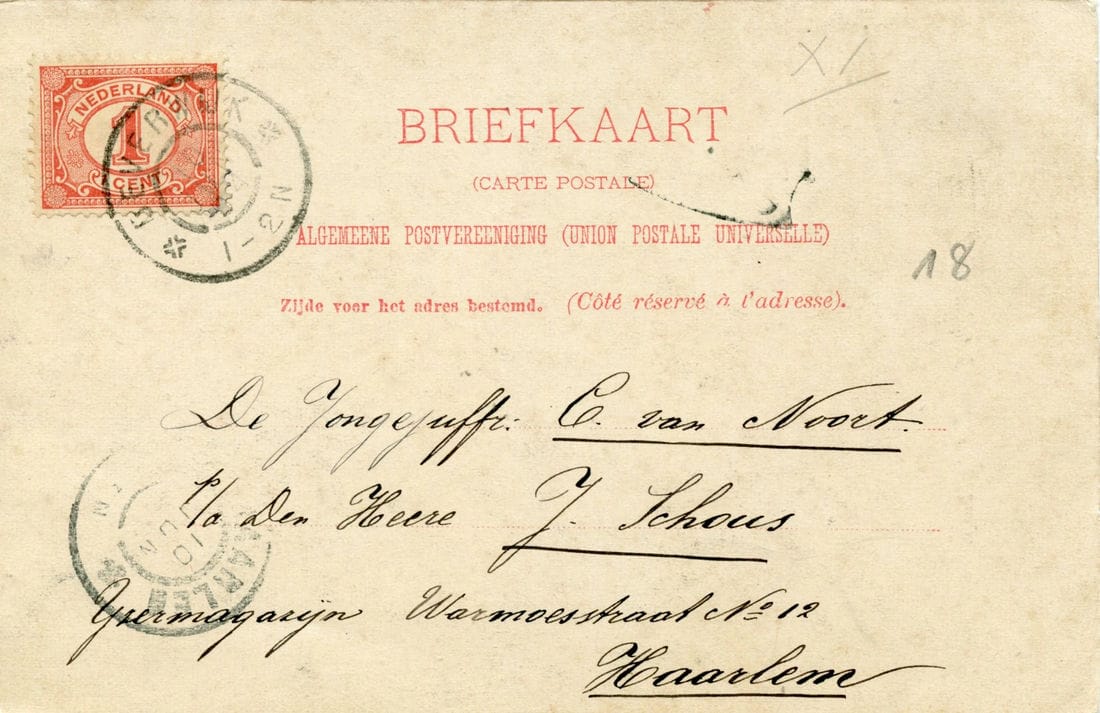 NEDERLAND
1
CENT
BEVERWIJK
1-2N
XI
BRIEFKAART
(CARTE POSTALE)
ALGEMEENE POSTVEREENIGING (UNION POSTALE UNIVERSELLE)
18
Zijde voor het adres bestemd. (Côté réservé à l'adresse).
De Jongejuffr: C. van Noort.
p/a Den Heere J. Schous
HAARLEM
Yzermagazijn Warmoesstraat No 12
Haarlem